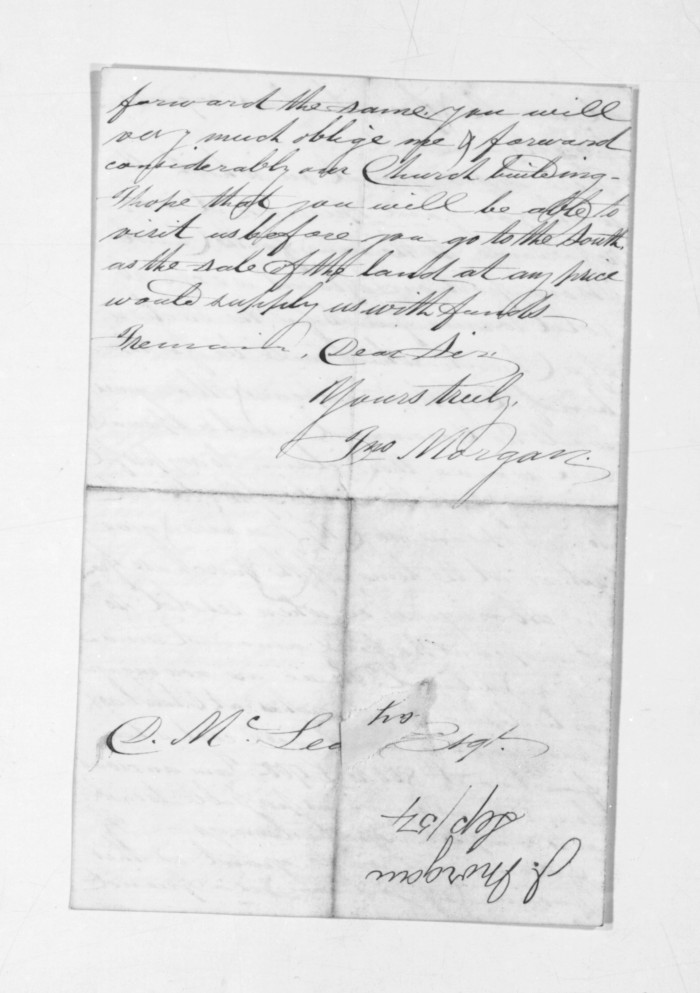 forward the same. you will
very much oblige me & forward
considerably our Church building -
I hope that you will be able to
visit us before you go to the South.
as the sale of the land at any price
would supply us with funds
I remain, Dear Sir
Yours truly,
Jno Morgan.
D. McLean Esqr.
J. Morgan
Sep/54